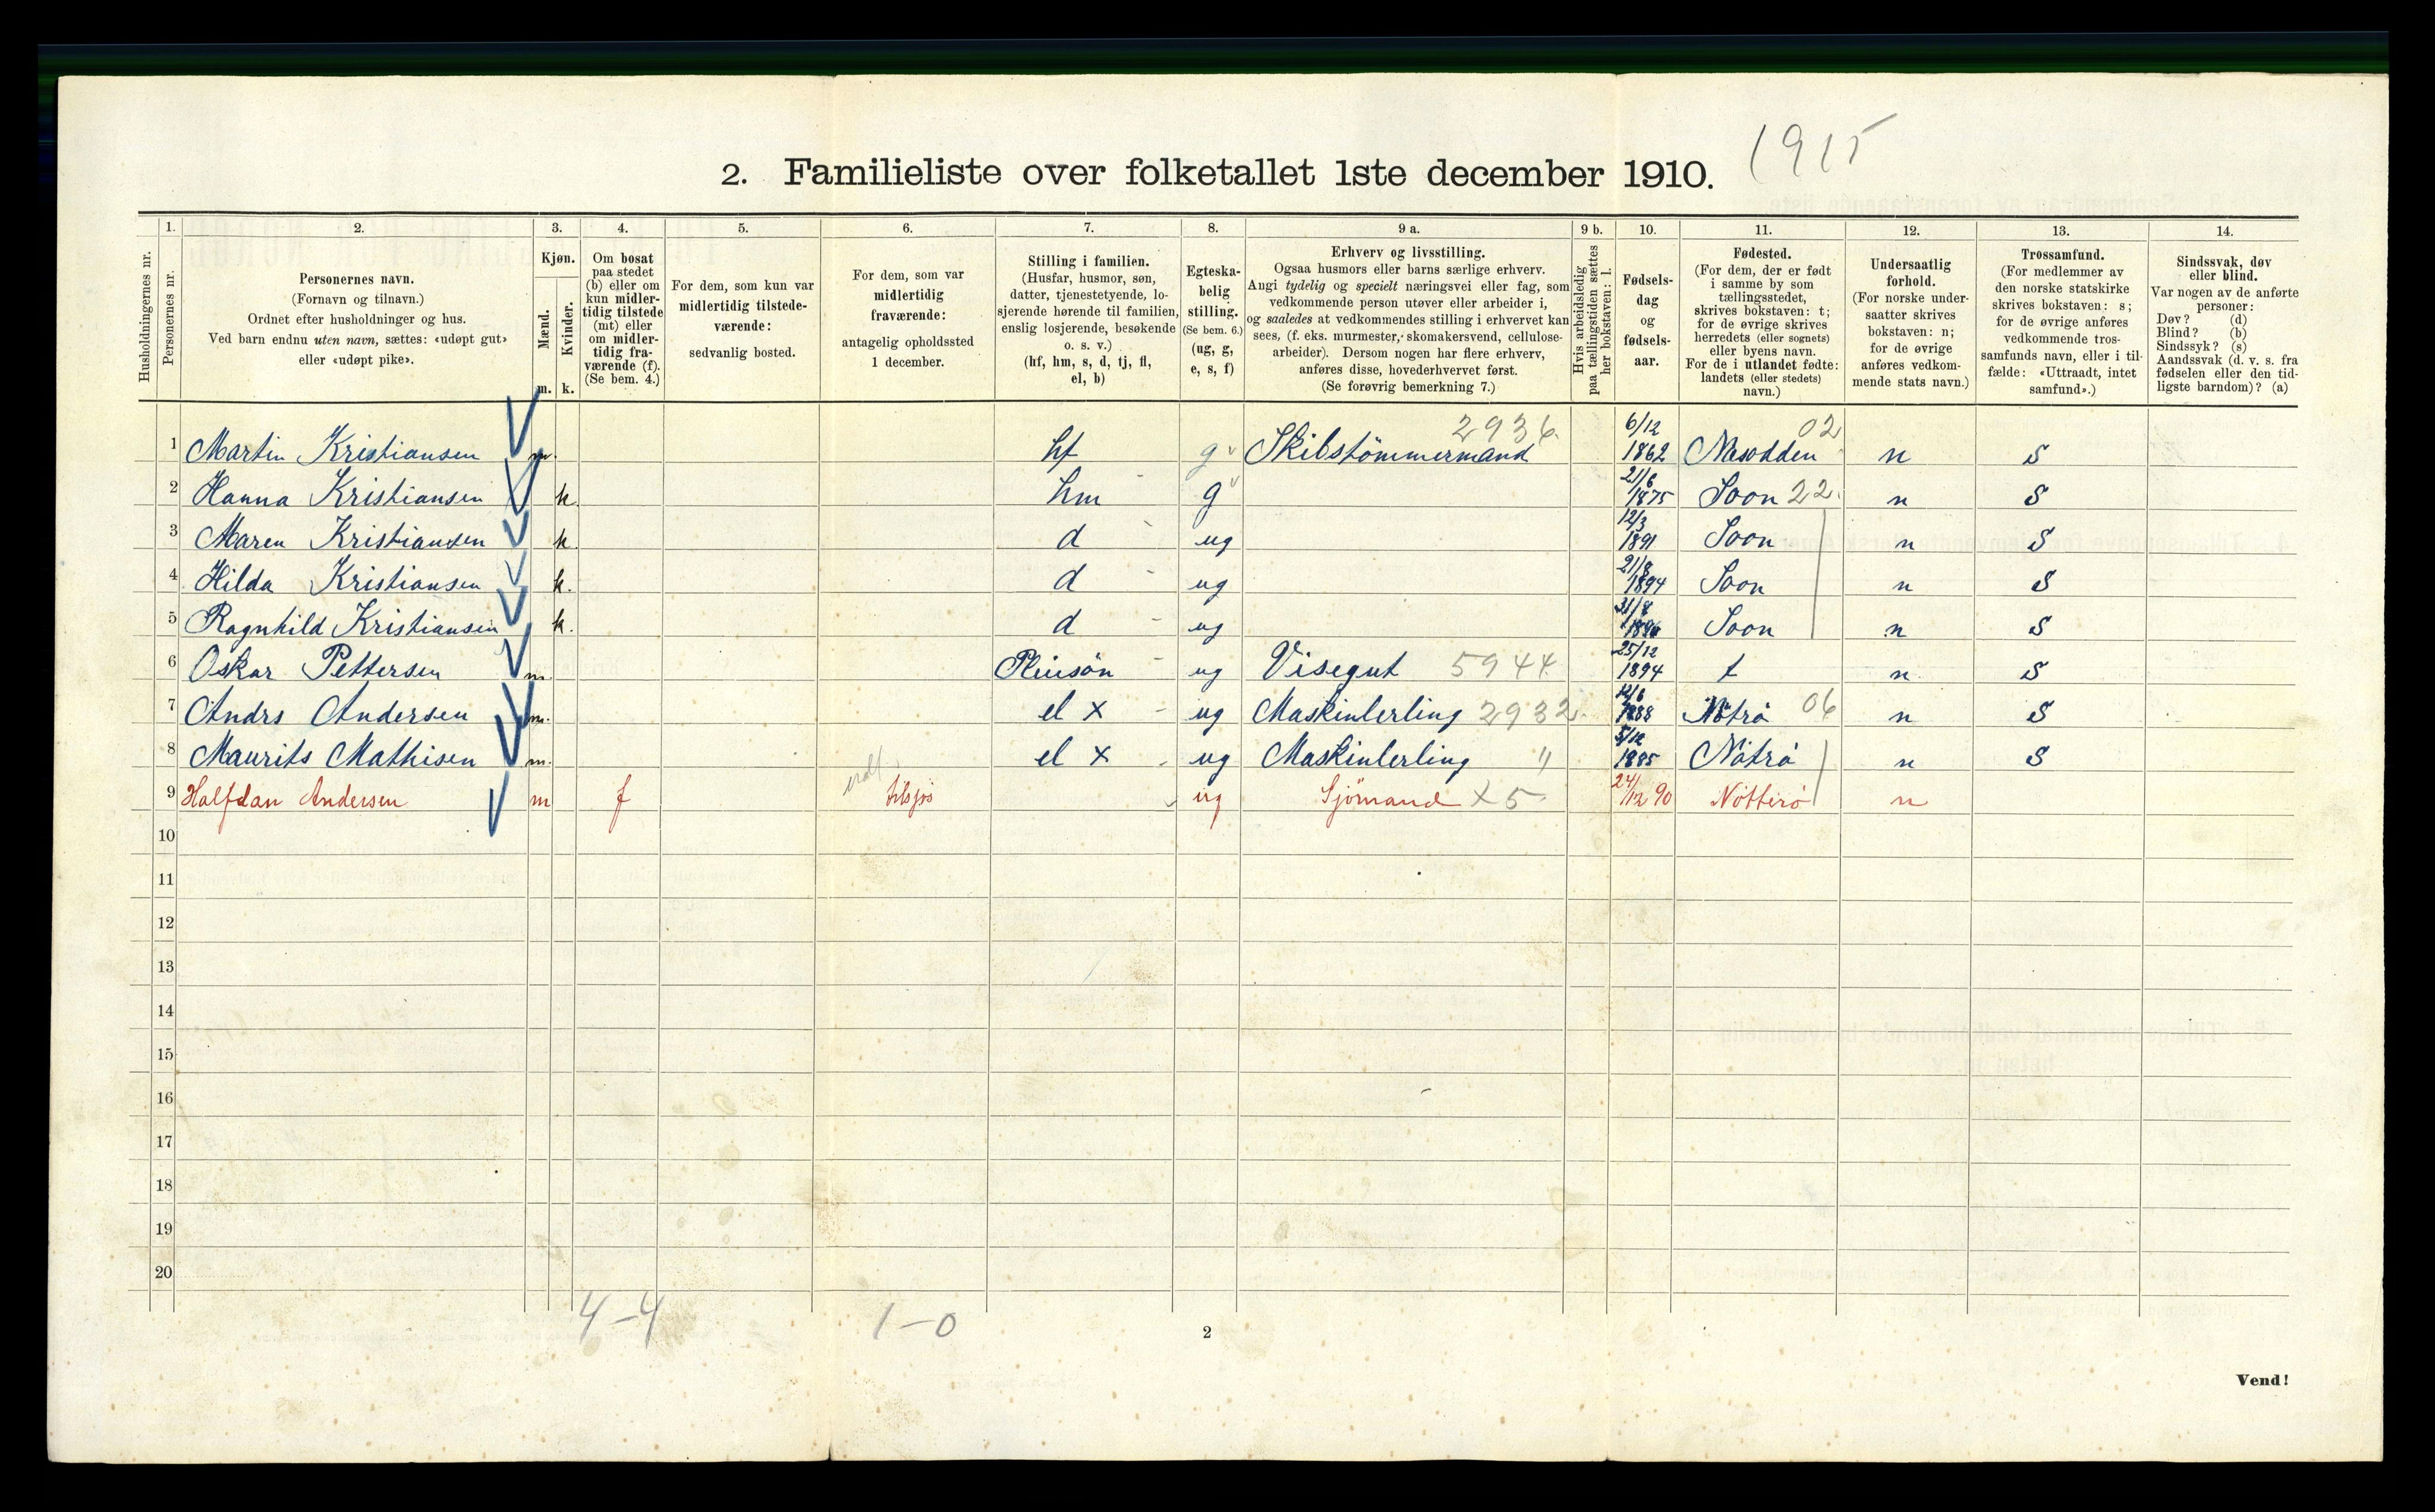 1915
2. Familieliste over folketallet 1ste december 1910.
Husholdningernes nr.
1.
Personernes nr.
2.
Personernes navn.
(Fornavn og tilnavn.)
Ordnet efter husholdninger og hus.
Ved barn endnu uten navn, sættes: «udøpt gut»
eller «udøpt pike».
3.
Kjøn.
Mænd.
Kvinder.
m. k.
4.
Om bosat
paa stedet
(b) eller om
kun midler-
tidig tilstede
(mt) eller
om midler-
tidig fra-
værende (f).
(Se bem. 4.)
5.
For dem, som kun var
midlertidig tilstede-
værende:
sedvanlig bosted.
6.
For dem, som var
midlertidig
fraværende:
antagelig opholdssted
1 december.
7.
Stilling i familien.
(Husfar, husmor, søn,
datter, tjenestetyende, lo-
sjerende hørende til familien,
enslig losjerende, besøkende
o. s. v.)
(hf, hm, s, d, tj, fl,
el, b)
8.
Egteska-
belig
stilling.
(Se bem. 6.)
(ug, g,
e, s, f)
9 a.
Erhverv og livsstilling.
Ogsaa husmors eller barns særlige erhverv.
Angi tydelig og specielt næringsvei eller fag, som
vedkommende person utøver eller arbeider i,
og saaledes at vedkommendes stilling i erhvervet kan
sees, (f. eks. murmester, skomakersvend, cellulose-
arbeider). Dersom nogen har flere erhverv,
anføres disse, hovederhvervet først.
(Se forøvrig bemerkning 7.)
9 b.
Hvis arbeidsledig
paa tællingstiden sættes
her bokstaven: l.
10.
Fødsels-
dag
og
fødsels-
aar.
11.
Fødested.
(For dem, der er født
i samme by som
tællingsstedet,
skrives bokstaven: t;
for de øvrige skrives
herredets (eller sognets)
eller byens navn.
For de i utlandet fødte:
landets (eller stedets)
navn.)
12.
Undersaatlig
forhold.
(For norske under-
saatter skrives
bokstaven: n;
for de øvrige
anføres vedkom-
mende stats navn.)
13.
Trossamfund.
(For medlemmer av
den norske statskirke
skrives bokstaven: s;
for de øvrige anføres
vedkommende tros-
samfunds navn, eller i til-
fælde: «Uttraadt, intet
samfund».)
14.
Sindssvak, døv
eller blind.
Var nogen av de anførte
personer:
Døv? (d)
Blind? (b)
Sindssyk? (s)
Aandssvak (d. v. s. fra
fødselen eller den tid-
ligste barndom)? (a)
1 Martin Kristiansen m. hf g Skibstömmermand 2936. 6/12 1862 Nesodden 02 n S
2 Hanna Kristiansen k. hm g 21/6 1875 Soon 22. n S
3 Maren Kristiansen k. d ug 12/3 1891 Soon n S
4 Hilda Kristiansen k. d ug 21/8 1894 Soon n S
5 Ragnhild Kristiansen k. d ug 31/8 Soon n S
6 Oskar Pettersen m. Pleiesön ug Visegut 5944 25/12 1894 t n. S
7 Andrs Andersen m. el x ug Maskinlerling 2932. 1888 Nötrö 06 n S
8 Maurits Mathisen m. el x ug Maskinlerling " 5/12 1885 Nötrö n S
9 Halfdan Andersen m f tilsjös ug Sjömand x5 24/12 90 Nötterö n
10
11
12
13
14
15
16
17
18
19
20
4-4 1-0
2
Vend!